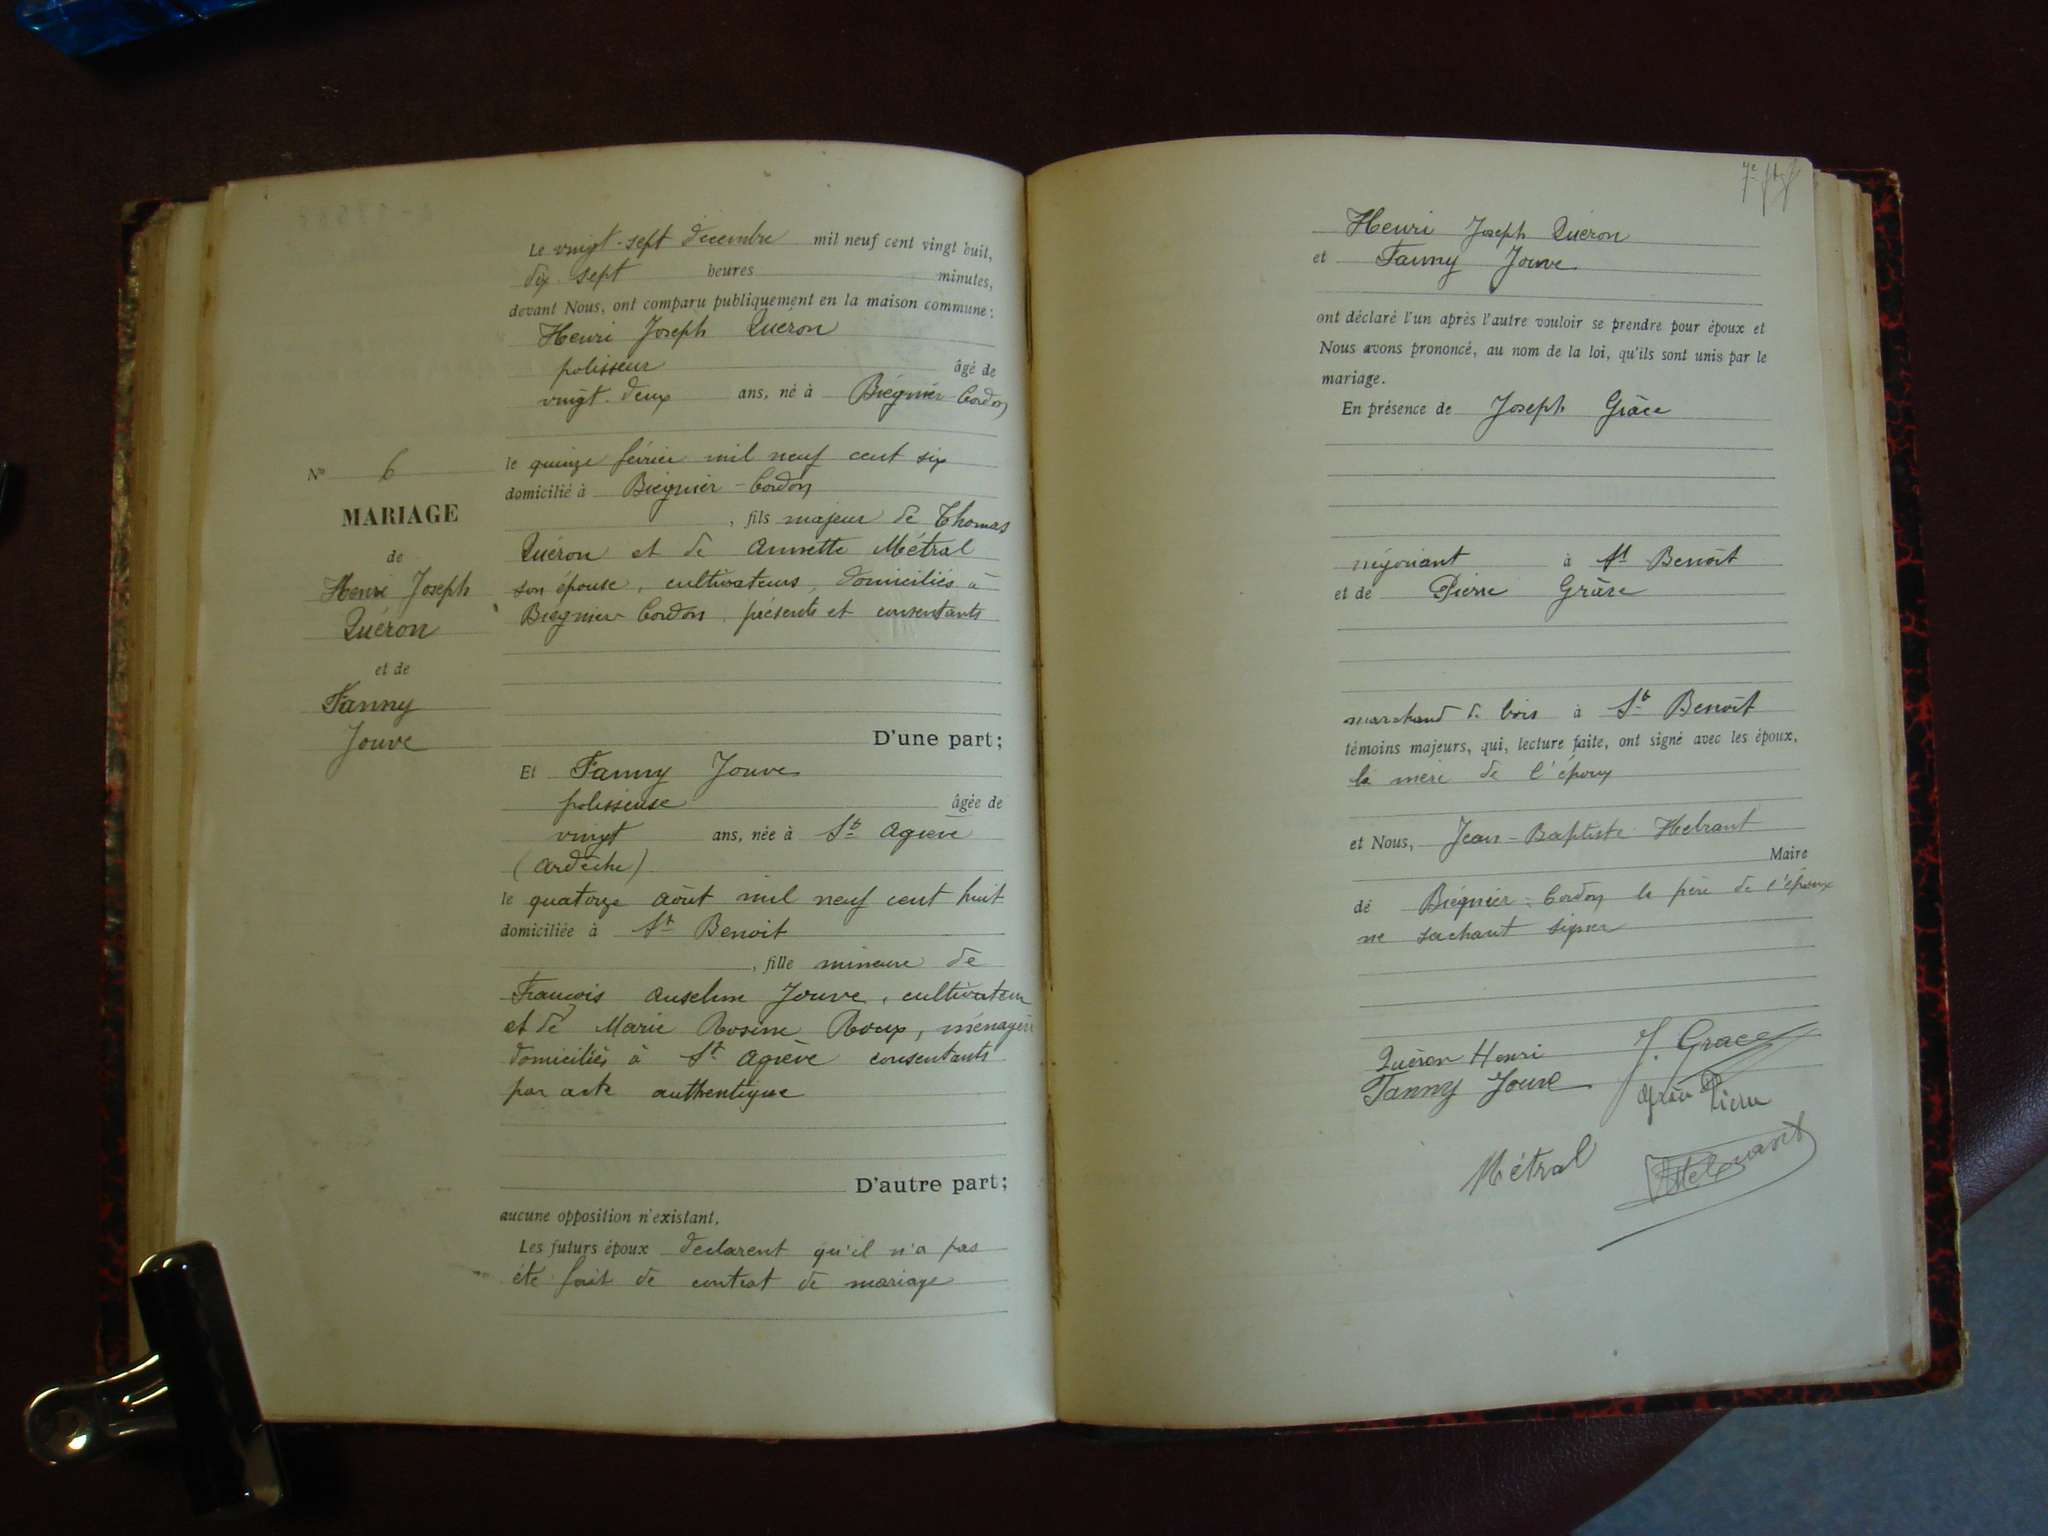 Le vingt-sept décembre mil neuf cent vingt huit,
dix sept heures minutes,
devant Nous, ont comparu publiquement en la maison commune :
Henri Joseph Quéron
polisseur âgé de
vingt-deux ans, né à Brégnier-Cordon
le quinze février mil neuf cent six
domicilié à Brégnier-Cordon
, fils majeur de Thomas
Quéron et de Annette Métral
son épouse, cultivateurs, domiciliés à
Brégnier Cordon, présents et consentants
D'une part ;
Nº 6
MARIAGE
de
Henri Joseph
Quéron
et de
Fanny
Jouve
Et Fanny Jouve
polisseuse âgée de
vingt ans, née à St Agrève
(Ardèche)
le quatorze août mil neuf cent huit
domiciliée à St Benoit
, fille mineure de
François Anselme Jouve, cultivateur
et de Marie Rosine Roux, ménagère
domiciliés à St Agrève consentants
par acte authentique
D'autre part ;
aucune opposition n'existant.
Les futurs époux déclarent qu'il n'a pas
été fait de contrat de mariage
Henri Joseph Quéron
et Fanny Jouve
ont déclaré l'un après l'autre vouloir se prendre pour époux et
Nous avons prononcé, au nom de la loi, qu'ils sont unis par le
mariage.
En présence de Joseph Grâce
négociant à St Benoît
et de Pierre Grâce
marchand de bois à St Benoît
témoins majeurs, qui, lecture faite, ont signé avec les époux,
la mère de l'époux
et Nous, Jean-Baptiste Hebrant
Maire
de Brégnier-Cordon le père de l'époux
ne sachant signer
Quéron Henri J. Grace
Fanny Jouve Grâce Pierre
Métral